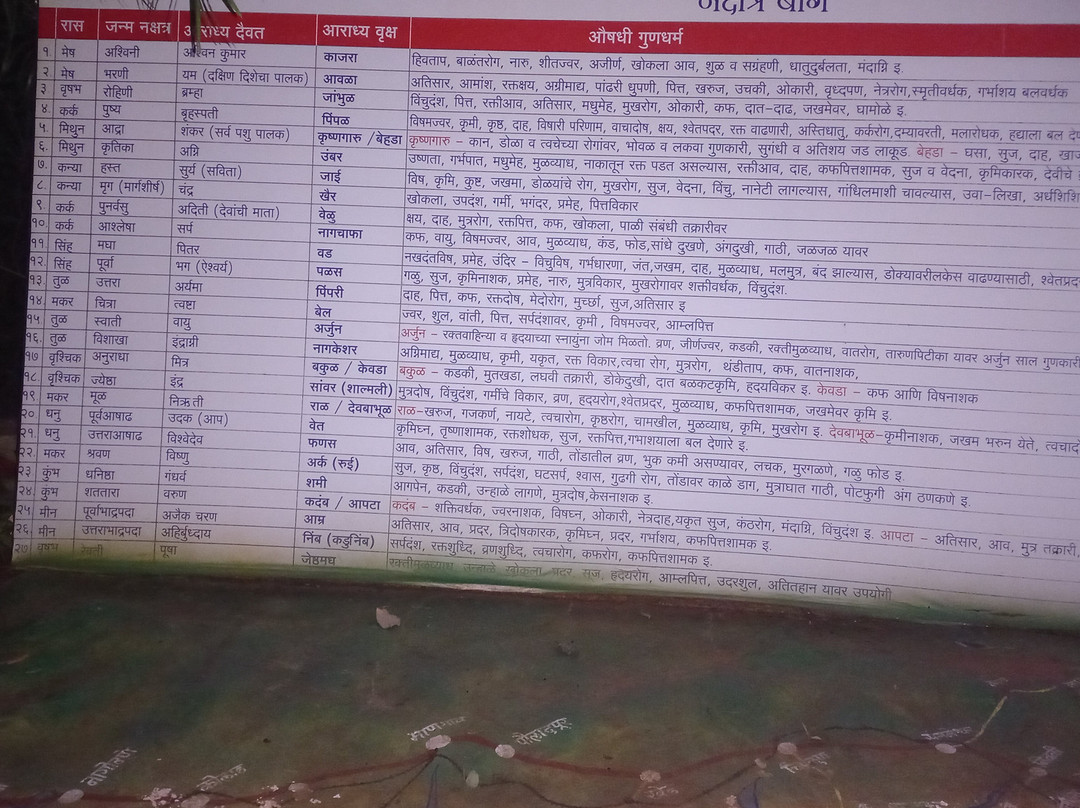 नक्षत्र बाग
रास जन्म नक्षत्र आराध्य दैवत आराध्य वृक्ष औषधी गुणधर्म
१. मेष अश्विनी अश्विन कुमार काजरा हिवताप, बाळंतरोग, नारु, शीतज्वर, अजीर्ण, खोकला आव, शुळ व संग्रहणी, धातुदुर्बलता, मंदाग्नि इ.
२. मेष भरणी यम (दक्षिण दिशेचा पालक) आवळा अतिसार, आमांश, रक्तक्षय, अग्रीमाध्य, पांढरी धुपणी, पित्त, खरुज, उचकी, ओकारी, वृध्दपण, नेत्ररोग,स्मृतीवर्धक, गर्भाशय बलवर्धक
३ वृषभ रोहिणी ब्रम्हा जांभुळ विंचुदंश, पित्त, रक्तीआव, अतिसार, मधुमेह, मुखरोग, ओकारी, कफ, दात-दाढ, जखमेवर, घामोळे इ.
४. कर्क पुष्य बृहस्पती पिंपळ विषमज्वर, कृमी, कृष्ठ, दाह, विषारी परिणाम, वाचादोष, क्षय, श्वेतपदर, रक्त वाढणारी, अस्तिधातु, कर्करोग,दम्यावरती, मलारोधक, हृद्याला बल
५. मिथुन आद्रा शंकर (सर्व पशु पालक) कृष्णगारु /बेहडा कृष्णगारु - कान, डोळा व त्वचेच्या रोगांवर, भोवळ व लकवा गुणकारी, सुगंधी व अतिशय जड लाकूड. बेहडा - घसा, सुज, दाह,
६. मिथुन कृतिका अग्नि उंबर उष्णता, गर्भपात, मधुमेह, मुळव्याध, नाकातून रक्त पडत असल्यास, रक्तीआव, दाह, कफपित्तशामक, सुज व वेदना, कृमिकारक, देवीचे
७. कन्या हस्त सुर्य (सविता) जाई विष, कृमि, कुष्ट, जखमा, डोळयांचे रोग, मुखरोग, सुज, वेदना, विंचु, नानेटी लागल्यास, गांधिलमाशी चावल्यास, उवा-लिखा,
८. कन्या मृग (मार्गशीर्ष) चंद्र खैर खोकला, उपदंश, गर्मी, भगंदर, प्रमेह, पित्तविकार
९ कर्क पुनर्वसु अदिती (देवांची माता) वेळु क्षय, दाह, मुत्ररोग, रक्तपित्त, कफ, खोकला, पाळी संबंधी तक्रारीवर
१०. कर्क आश्लेषा सर्प नागचाफा कफ, वायु, विषमज्वर, आव, मुळव्याध, कंड, फोड,सांधे दुखणे, अंगदुखी, गाठी, जळजळ यावर
११ सिंह मघा पितर वड नखदंतविष, प्रमेह, उंदिर - विचुविष, गर्भधारणा, जंत,जखम, दाह, मुळव्याध, मलमुत्र, बंद झाल्यास, डोक्यावरीलकेस वाढण्यासाठी,
१२. सिंह पूर्वा भग (ऐश्वर्य) पळस गळु, सुज, कृमिनाशक, प्रमेह, नारु, मुत्रविकार, मुखरोगावर शक्तीवर्धक, विंचुदंश.
१३. तुळ उत्तरा अर्यमा पिंपरी दाह, पित्त, कफ, रक्तदोष, मेदोरोग, मुर्च्छा, सुज,अतिसार इ
१४. मकर चित्रा त्वष्टा बेल ज्वर, शुल, वांती, पित्त, सर्पदंशावर, कृमी , विषमज्वर, आम्लपित्त
१५ तुळ स्वाती वायु अर्जुन अर्जुन - रक्तवाहिन्या व हृदयाच्या स्नायुंना जोम मिळतो. व्रण, जीर्णज्वर, कडकी, रक्तीमुळव्याध, वातरोग, तारुणपिटीका यावर अर्जुन साल गुणकारी
१६. तुळ विशाखा इंद्राग्नी नागकेशर अग्निमाद्य, मुळव्याध, कृमी, यकृत, रक्त विकार,त्वचा रोग, मुत्ररोग, थंडीताप, कफ, वातनाशक,
१७ वृश्चिक अनुराधा मित्र बकुळ / केवडा बकुळ - कडकी, मुतखडा, लघवी तक्रारी, डोकेदुखी, दात बळकटकृमि, हृदयविकर इ. केवडा - कफ आणि विषनाशक
१८. वृश्चिक ज्येष्ठा इंद्र सांवर (शाल्मली) मुत्रदोष, विंचुदंश, गर्मीचे विकार, व्रण, हृदयरोग,श्वेतप्रदर, मुळव्याध, कफपित्तशामक, जखमेवर कृमि इ.
१९ मकर मूळ निऋती राळ / देवबाभूळ राळ-खरुज, गजकर्ण, नायटे, त्वचारोग, कृष्ठरोग, चामखील, मुळव्याध, कृमि, मुखरोग इ. देवबाभूळ-कृमीनाशक, जखम भरुन येते,
२० धनु पूर्वआषाढ उदक (आप) वेत कृमिघ्न, तृष्णाशामक, रक्तशोधक, सुज, रक्तपित्त,गभाशयाला बल देणारे इ.
२१. धनु उत्तराआषाढ विश्वेदेव फणस आव, अतिसार, विष, खरुज, गाठी, तोंडातील व्रण, भुक कमी असण्यावर, लचक, मुरगळणे, गळु फोड इ.
२२. मकर श्रवण विष्णु अर्क (रुई) सुज, कृष्ठ, विंचुदंश, सर्पदंश, घटसर्प, श्वास, गुढगी रोग, तोंडावर काळे डाग, मुत्राघात गाठी, पोटफुगी अंग ठणकणे इ.
२३ कुंभ धनिष्ठा गंधर्व शमी आगपेन, कडकी, उन्हाळे लागणे, मुत्रदोष,केसनाशक इ.
२४. कुंभ शततारा वरुण कदंब / आपटा कदंब - शक्तिवर्धक, ज्वरनाशक, विषघ्न, ओकारी, नेत्रदाह,यकृत सुज, कंठरोग, मंदाग्नि, विंचुदंश इ. आपटा - अतिसार, आव, मुत्र तक्रारी,
२५ मीन पूर्वाभाद्रपदा अजैक चरण आम्र अतिसार, आव, प्रदर, त्रिदोषकारक, कृमिघ्न, प्रदर, गर्भाशय, कफपित्तशामक इ.
२६. मीन उत्तराभाद्रपदा अहिर्बुध्दाय निंब (कडुनिंब) सर्पदंश, रक्तशुध्दि, व्रणशुध्दि, त्वचारोग, कफरोग, कफपित्तशामक इ.
२७ रेवती पूषा जेष्ठमध रक्तीमुळव्याध उन्हाळे खोकला प्रदर सूज, हृदयरोग, आम्लपित्त, उदरशुल, अतितहान यावर उपयोगी
पोलादपूर